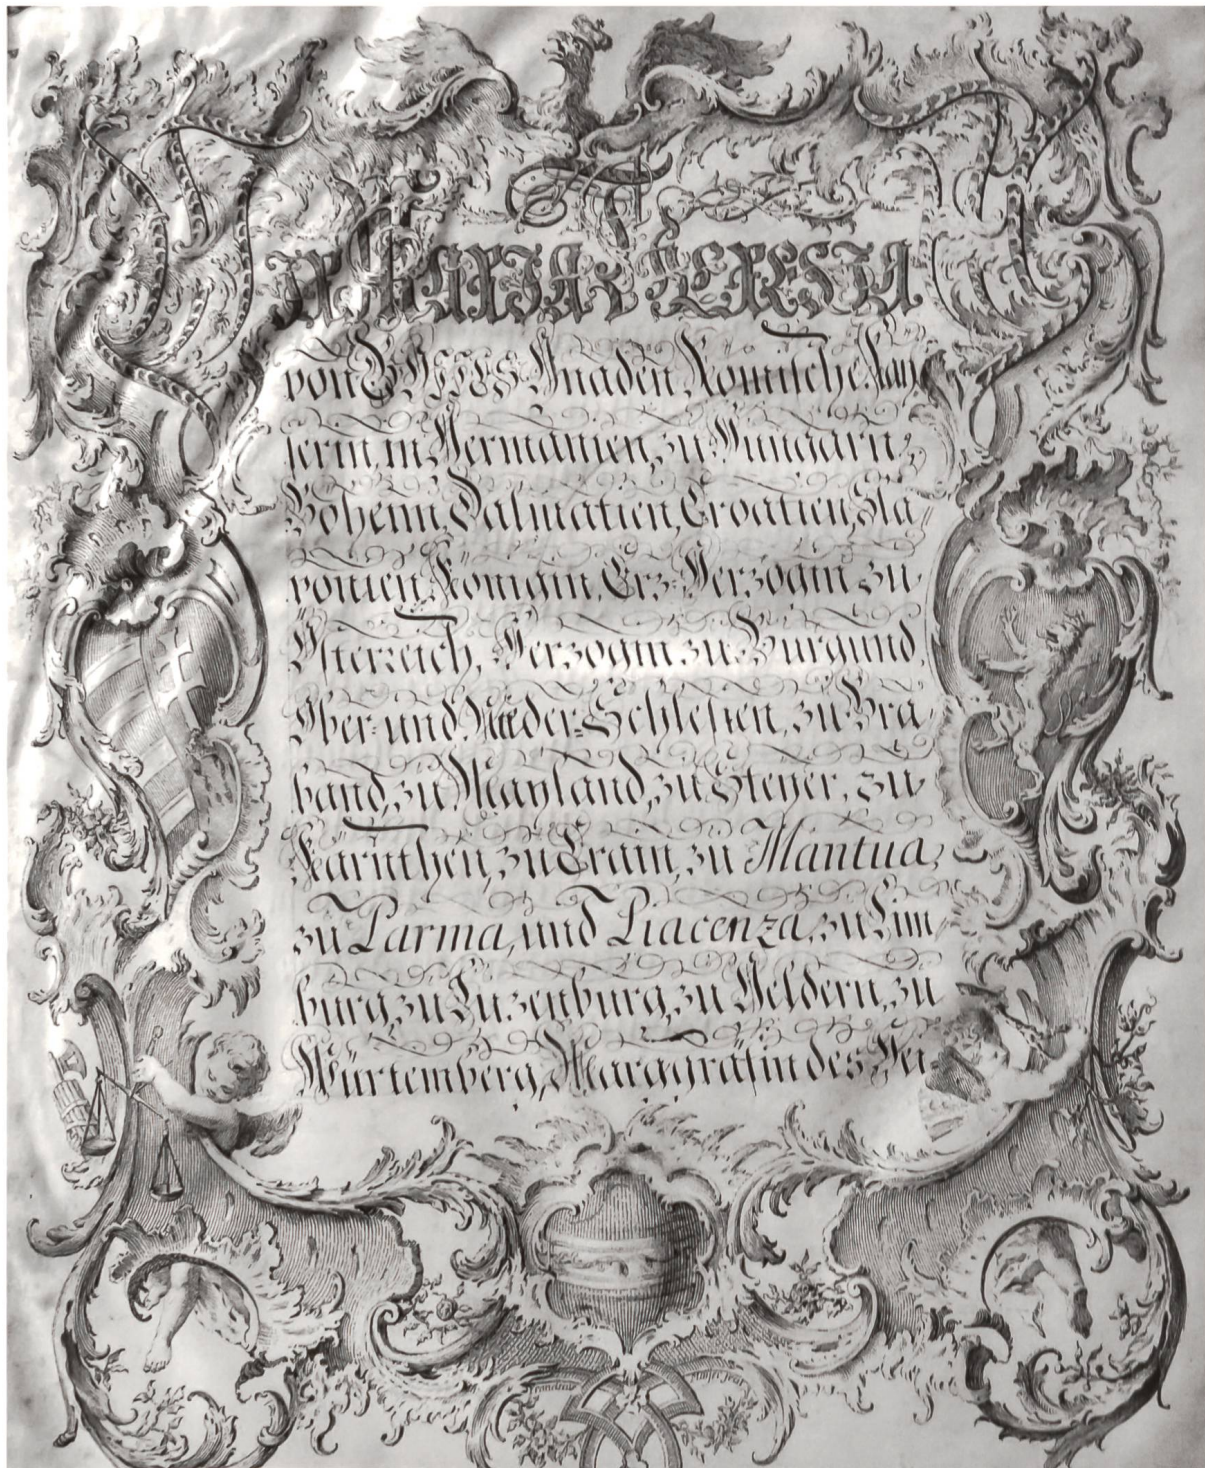 WIR MARIA THERESIA
von GOTTES Gnaden Römische Kay
serin, in Germanien, zu Hungarn,
Böheim, Dalmatien, Croatien, Sla,,
vonien, Königin, Erz-Herzogin zu
Österreich, Herzogin zu Burgund,
Ober- und Nieder-Schlesien, zu Bra
band, zu Mayland, zu Steyer, zu
Kärnthen, zu Crain, zu Mantua,
zu Parma, und Piacenza, zu Lim,,
burg, zu Luzenburg, zu Geldern, zu
Würtemberg, Marggräfin des Hei